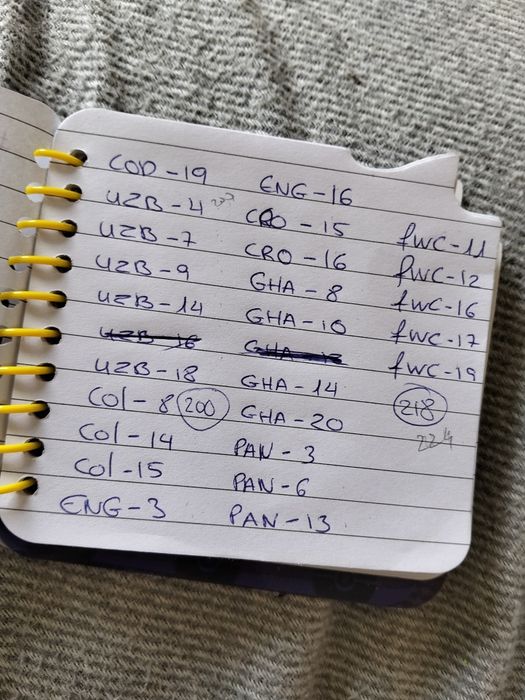 COD-19
UZB-4
UZB-7
UZB-9
UZB-14
UZB-16
UZB-18
Col-8 200
Col-14
Col-15
ENG-3
ENG-16
CRO-15
CRO-16
GHA-8
GHA-10
GHA-14
GHA-20
PAN-3
PAN-6
PAN-13
fwc-11
fwc-12
fwc-16
fwc-17
fwc-19
218
224